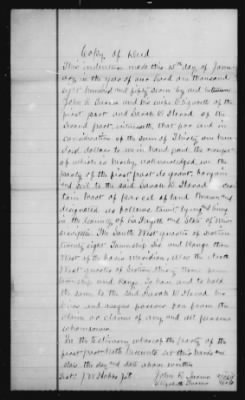 Copy of Deed
This indenture made this 15th day of Janu
ary in the year of our Lord one thousand
eight hundred and fifty seven by and between
John R. and his wife Elizabeth of the
first part and Sarah E. of the
second part, witnesseth, that for and in
consideration of the sum of Thirty
dollars to us in hand paid the receipt
of which is hereby acknowledged we the
party of the first part do grant, bargain
and sell to the said Sarah E. a cer
tain tract or parcel of land known and
designated as follows lying and being
in the county of and State of Miss
issippi The South West quarter of Section
twenty eight Township Six and Range
West of the basis meridian, also the North
West quarter of Section thirty three same
township and Range To have and to hold
the same to the said Sarah E. her
heirs and assigns forever free from the
claim or claims of any and all persons
whomsoever.
In testimony whereof the party of
the first part hath hereunto set their hands and
seals the day and date above written
Test. J. W. Hobbs J.P.
John R.
Elizabeth